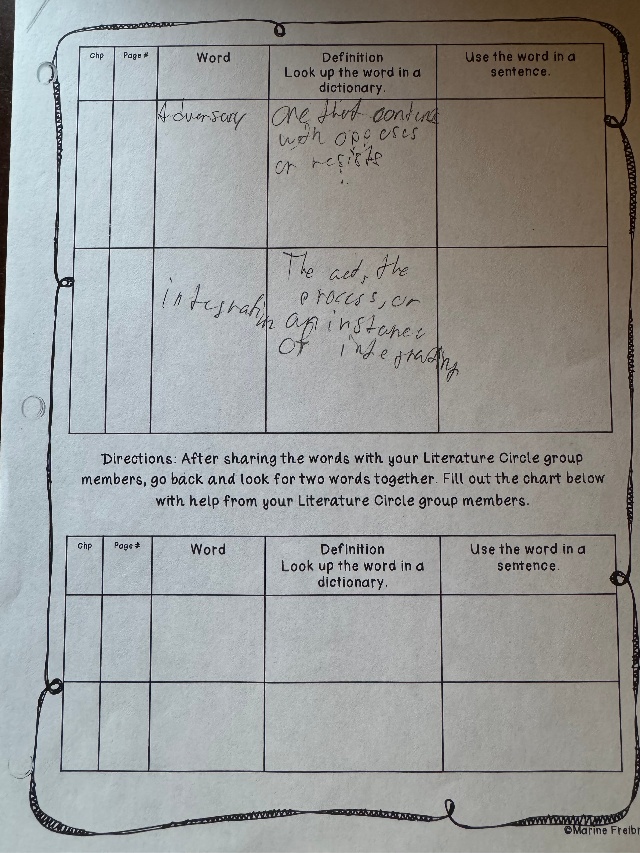 Chp Page # Word Definition Use the word in a
Look up the word in a sentence.
dictionary.
Adversary One that contends
with opposes
or resists
The act, the
integration process, or
an instance
of integrating
Directions: After sharing the words with your Literature Circle group
members, go back and look for two words together. Fill out the chart below
with help from your Literature Circle group members.
Chp Page # Word Definition Use the word in a
Look up the word in a sentence.
dictionary.
©Marine Freibr